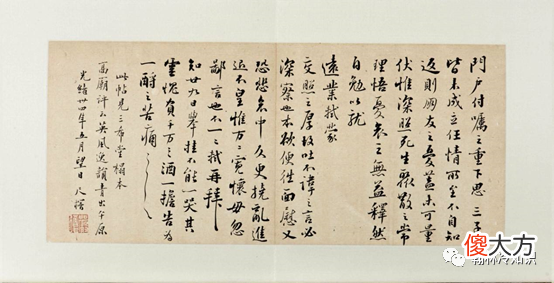 門戶付囑之重下思三子
皆未成立任情所至不自知
返則朋友之憂蓋未可量
伏惟深照死生聚散之常
理悟憂哀之無益釋然
自勉以就
遠業軾蒙
交照之厚故吐不諱之言必
深察也本欲便往面慰又
恐悲哀中反更撓亂進
退不皇惟万万寬懷毋忽
鄙言也不一一軾再拜
知廿九日舉挂不能一哭其
靈愧負千万酒一擔告為
一酹之苦痛
此帖見三希堂搨本
英風逸韻青出乎原
光緒廿四年五月望日
傻大方